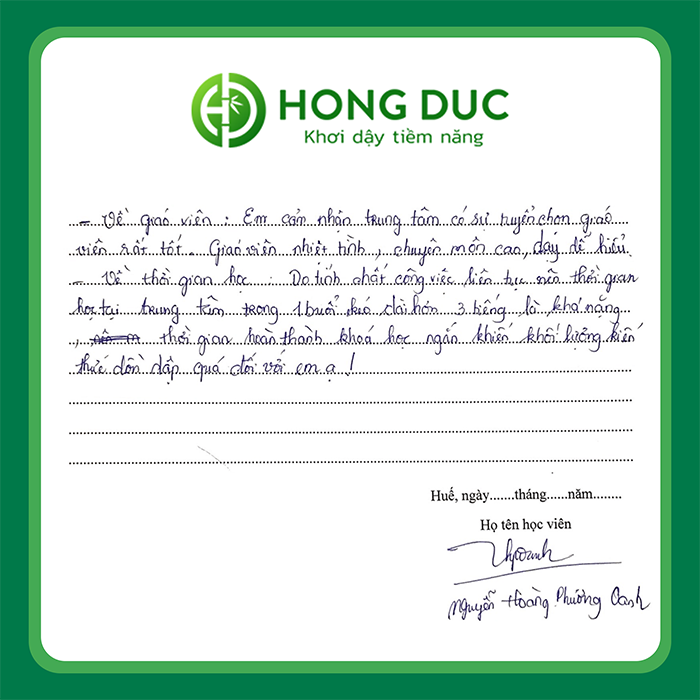 HONG DUC
Khơi dậy tiềm năng
- Về giáo viên : Em cảm nhận trung tâm có sự tuyển chọn giáo
viên rất tốt. Giáo viên nhiệt tình, chuyên môn cao, dạy dễ hiểu
- Về thời gian học : Do tính chất công việc liên tục nên thời gian
học tại trung tâm trong 1 buổi kéo dài hơn 3 tiếng là khá nặng
, thời gian hoàn thành khoá học ngắn khiến khối lượng kiến
thức dồn dập quá đối với em ạ !
Huế, ngày.......tháng......năm........
Họ tên học viên
Nguyễn Hoàng Phương Oanh